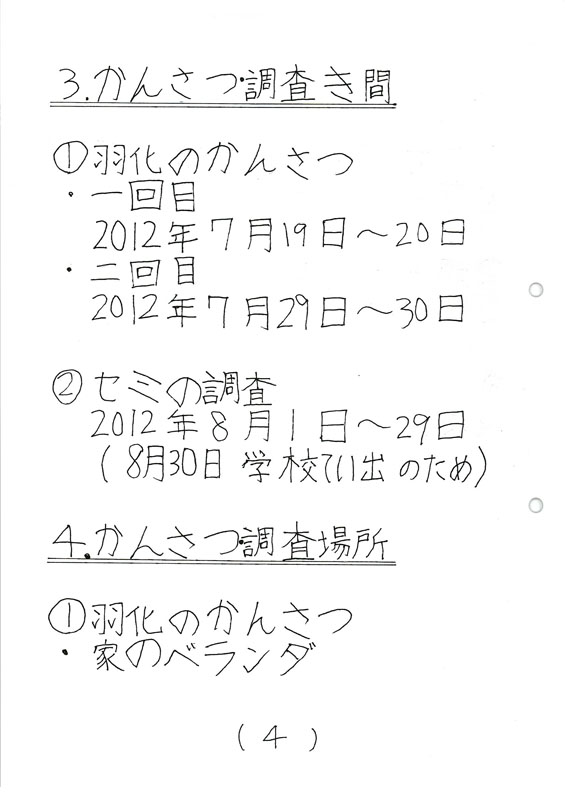 3.かんさつ・調査き間
①羽化のかんさつ
・一回目
2012年7月19日～20日
・二回目
2012年7月29日～30日
②セミの調査
2012年8月1日～29日
(8月30日 学校てい出のため)
4.かんさつ・調査場所
①羽化のかんさつ
・家のベランダ
(4)